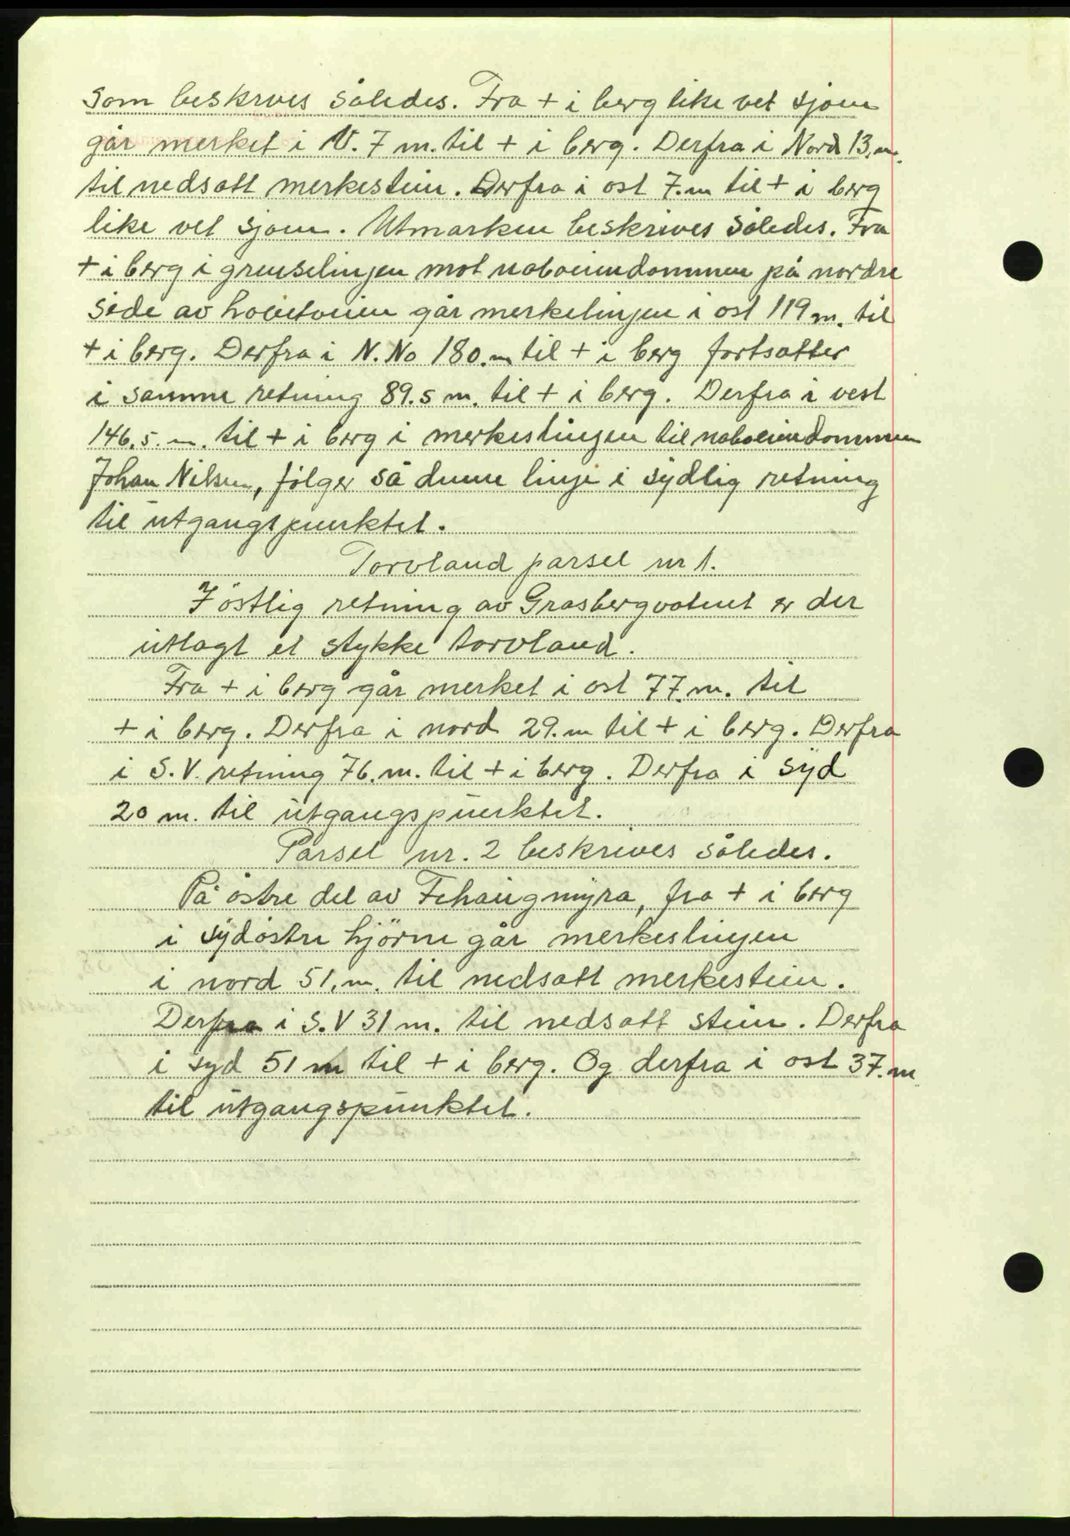 som beskrives således. Fra + i berg like vet sjøen
går merket i V. 7 m. til + i berg. Derfra i Nord 13. m.
til nedsatt merkestein. Derfra i ost 7. m til + i berg
like vet sjøen. Utmarken beskrives således. Fra
+ i berg i grenselinjen mot naboeiendommen på nordre
side av hovetveien går merkelinjen i ost 119 m. til
+ i berg. Derfra i N. No 180. m til + i berg fortsatter
i samme retning 89.5 m. til + i berg. Derfra i vest
146.5. m. til + i berg i merkeslinjen til naboeiendommen
Johan Nilsen, følger så denne linje i sydlig retning
til utgangspunktet.
Torvland parsel nr 1.
I östlig retning av Grasbergvatnet er der
utlagt et stykke torvland.
Fra + i berg går merket i ost 77. m. til
+ i berg. Derfra i nord 29. m til + i berg. Derfra
i S.V. retning 76. m. til + i berg. Derfra i syd
20 m. til utgangspunktet.
Parsel nr. 2 beskrives således.
På östre del av Fehaugmyra, fra + i berg
i sydöstre hjörne går merkeslinjen
i nord 51. m. til nedsatt merkestein.
Derfra i S.V 31 m. til nedsatt stein. Derfra
i syd 51 m til + i berg. Og derfra i ost 37. m
til utgangspunktet.